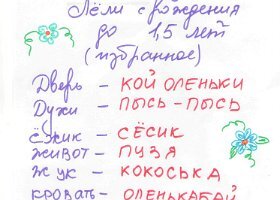 Лёли с рождения
до 1,5 лет
(избранное)
Дверь – КОЙ ОЛЕНЬКИ
Духи – ПЫСЬ-ПЫСЬ
ЁЖИК – СЁСИК
ЖИВОТ – ПУЗЯ
ЖУК – КОКОСЬКА
КРОВАТЬ – ОЛЕНЬКАБАЙ